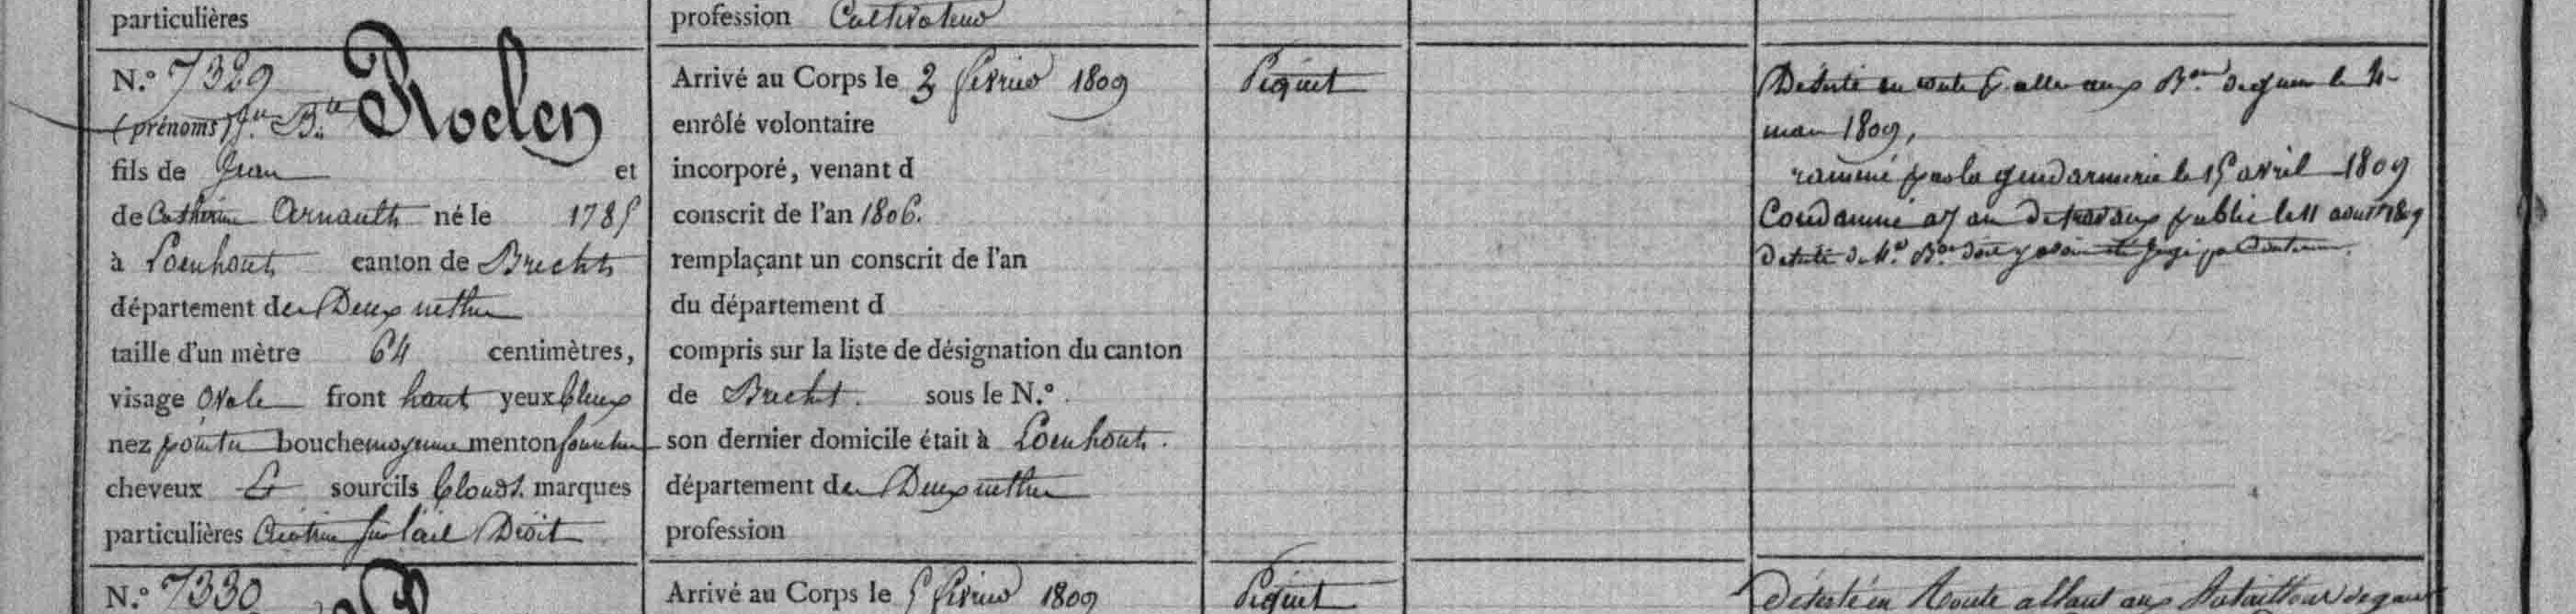 particulières
profession Cultivateur
N.º 7329 Roelen
(prénoms) Jn. Bte
fils de Jean et
de Catherine Arnauts né le 1785
à Loenhout canton de Brecht
département des Deux nethes
taille d'un mètre 64 centimètres,
visage ovale front haut yeux bleus
nez pointu bouche moyenne menton fourchu
cheveux & sourcils blonds. marques
particulières Cicatrice sur l'œil Droit
Arrivé au Corps le 3 février 1809
enrôlé volontaire
incorporé, venant d
conscrit de l'an 1806.
remplaçant un conscrit de l'an
du département d
compris sur la liste de désignation du canton
de Brecht. sous le N.º
son dernier domicile était à Loenhout.
département des Deux nethes
profession
Piquet
Déserté en route p. aller aux Bons. de guerre le 4
mars 1809,
ramené par la gendarmerie le 15 avril 1809
Condamné a 7 ans de travaux public le 11 aout 1809
N.º 7330
Arrivé au Corps le 5 février 1809
Piquet
Déserté en Route allant aux Bataillons de guerre